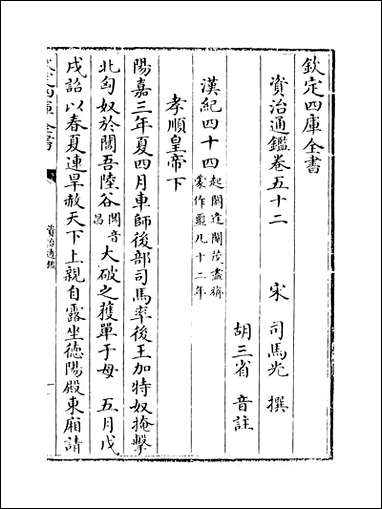 欽定四庫全書
資治通鑑卷五十二
宋 司馬光 撰
胡三省 音註
漢紀四十四起閼逢閹茂盡旃蒙作噩凡十二年
孝順皇帝下
陽嘉三年夏四月車師後部司馬率後王加特奴掩擊
北匈奴於閶吾陸谷閶音昌大破之獲單于母 五月戊
戌詔以春夏連旱赦天下上親自露坐德陽殿東廂請
資治通鑑